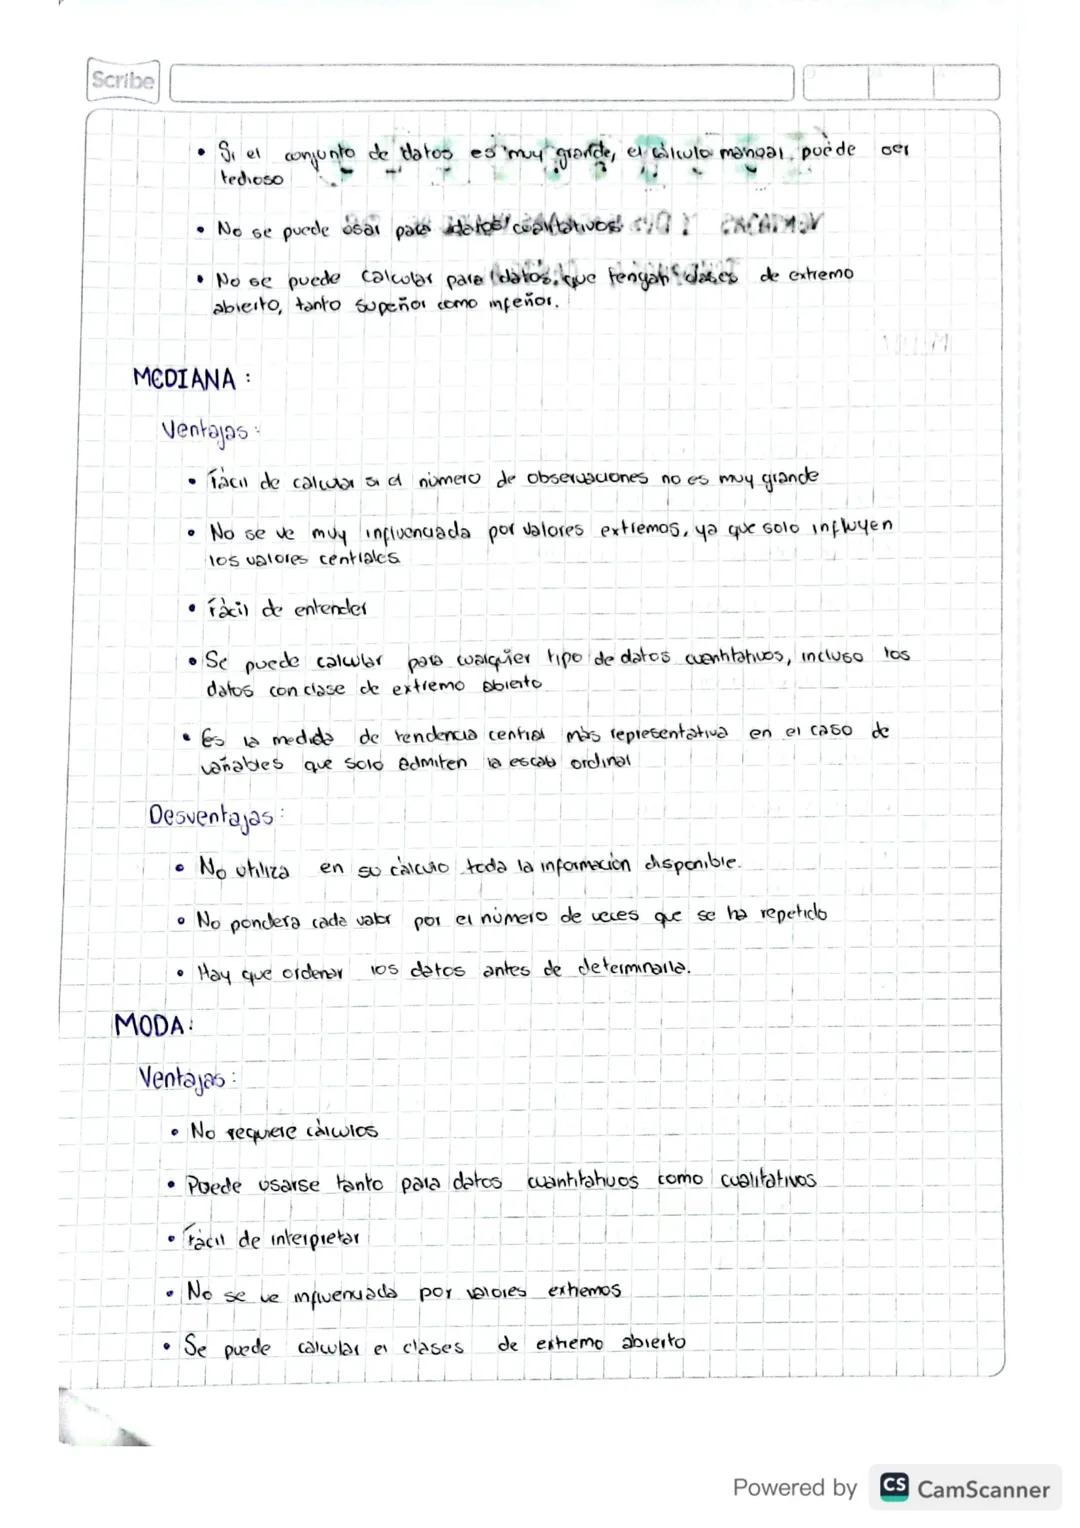 Scribe
• Si el conjunto de datos es muy grande, el cálculo manual puede ser
tedioso
• No se puede usar para datos cualitativos
• No se puede calcular para datos que tengan clases de extremo
abierto, tanto superior como inferior.
MEDIANA:
Ventajas:
• Fácil de calcular si el número de observaciones no es muy grande
• No se ve muy influenciada por valores extremos, ya que solo influyen
los valores centrales
• Fácil de entender
• Se puede calcular para cualquier tipo de datos cuantitativos, incluso los
datos con clase de extremo abierto
• Es la medida de tendencia central más representativa en el caso de
variables que solo admiten la escala ordinal
Desventajas:
• No utiliza en su cálculo toda la información disponible.
• No pondera cada valor por el número de veces que se ha repetido
• Hay que ordenar los datos antes de determinarla.
MODA:
Ventajas:
• No requiere cálculos
• Puede usarse tanto para datos cuantitativos como cualitativos
• Fácil de interpretar
• No se ve influenciada por valores extremos
• Se puede calcular en clases de extremo abierto
Powered by CS CamScanner